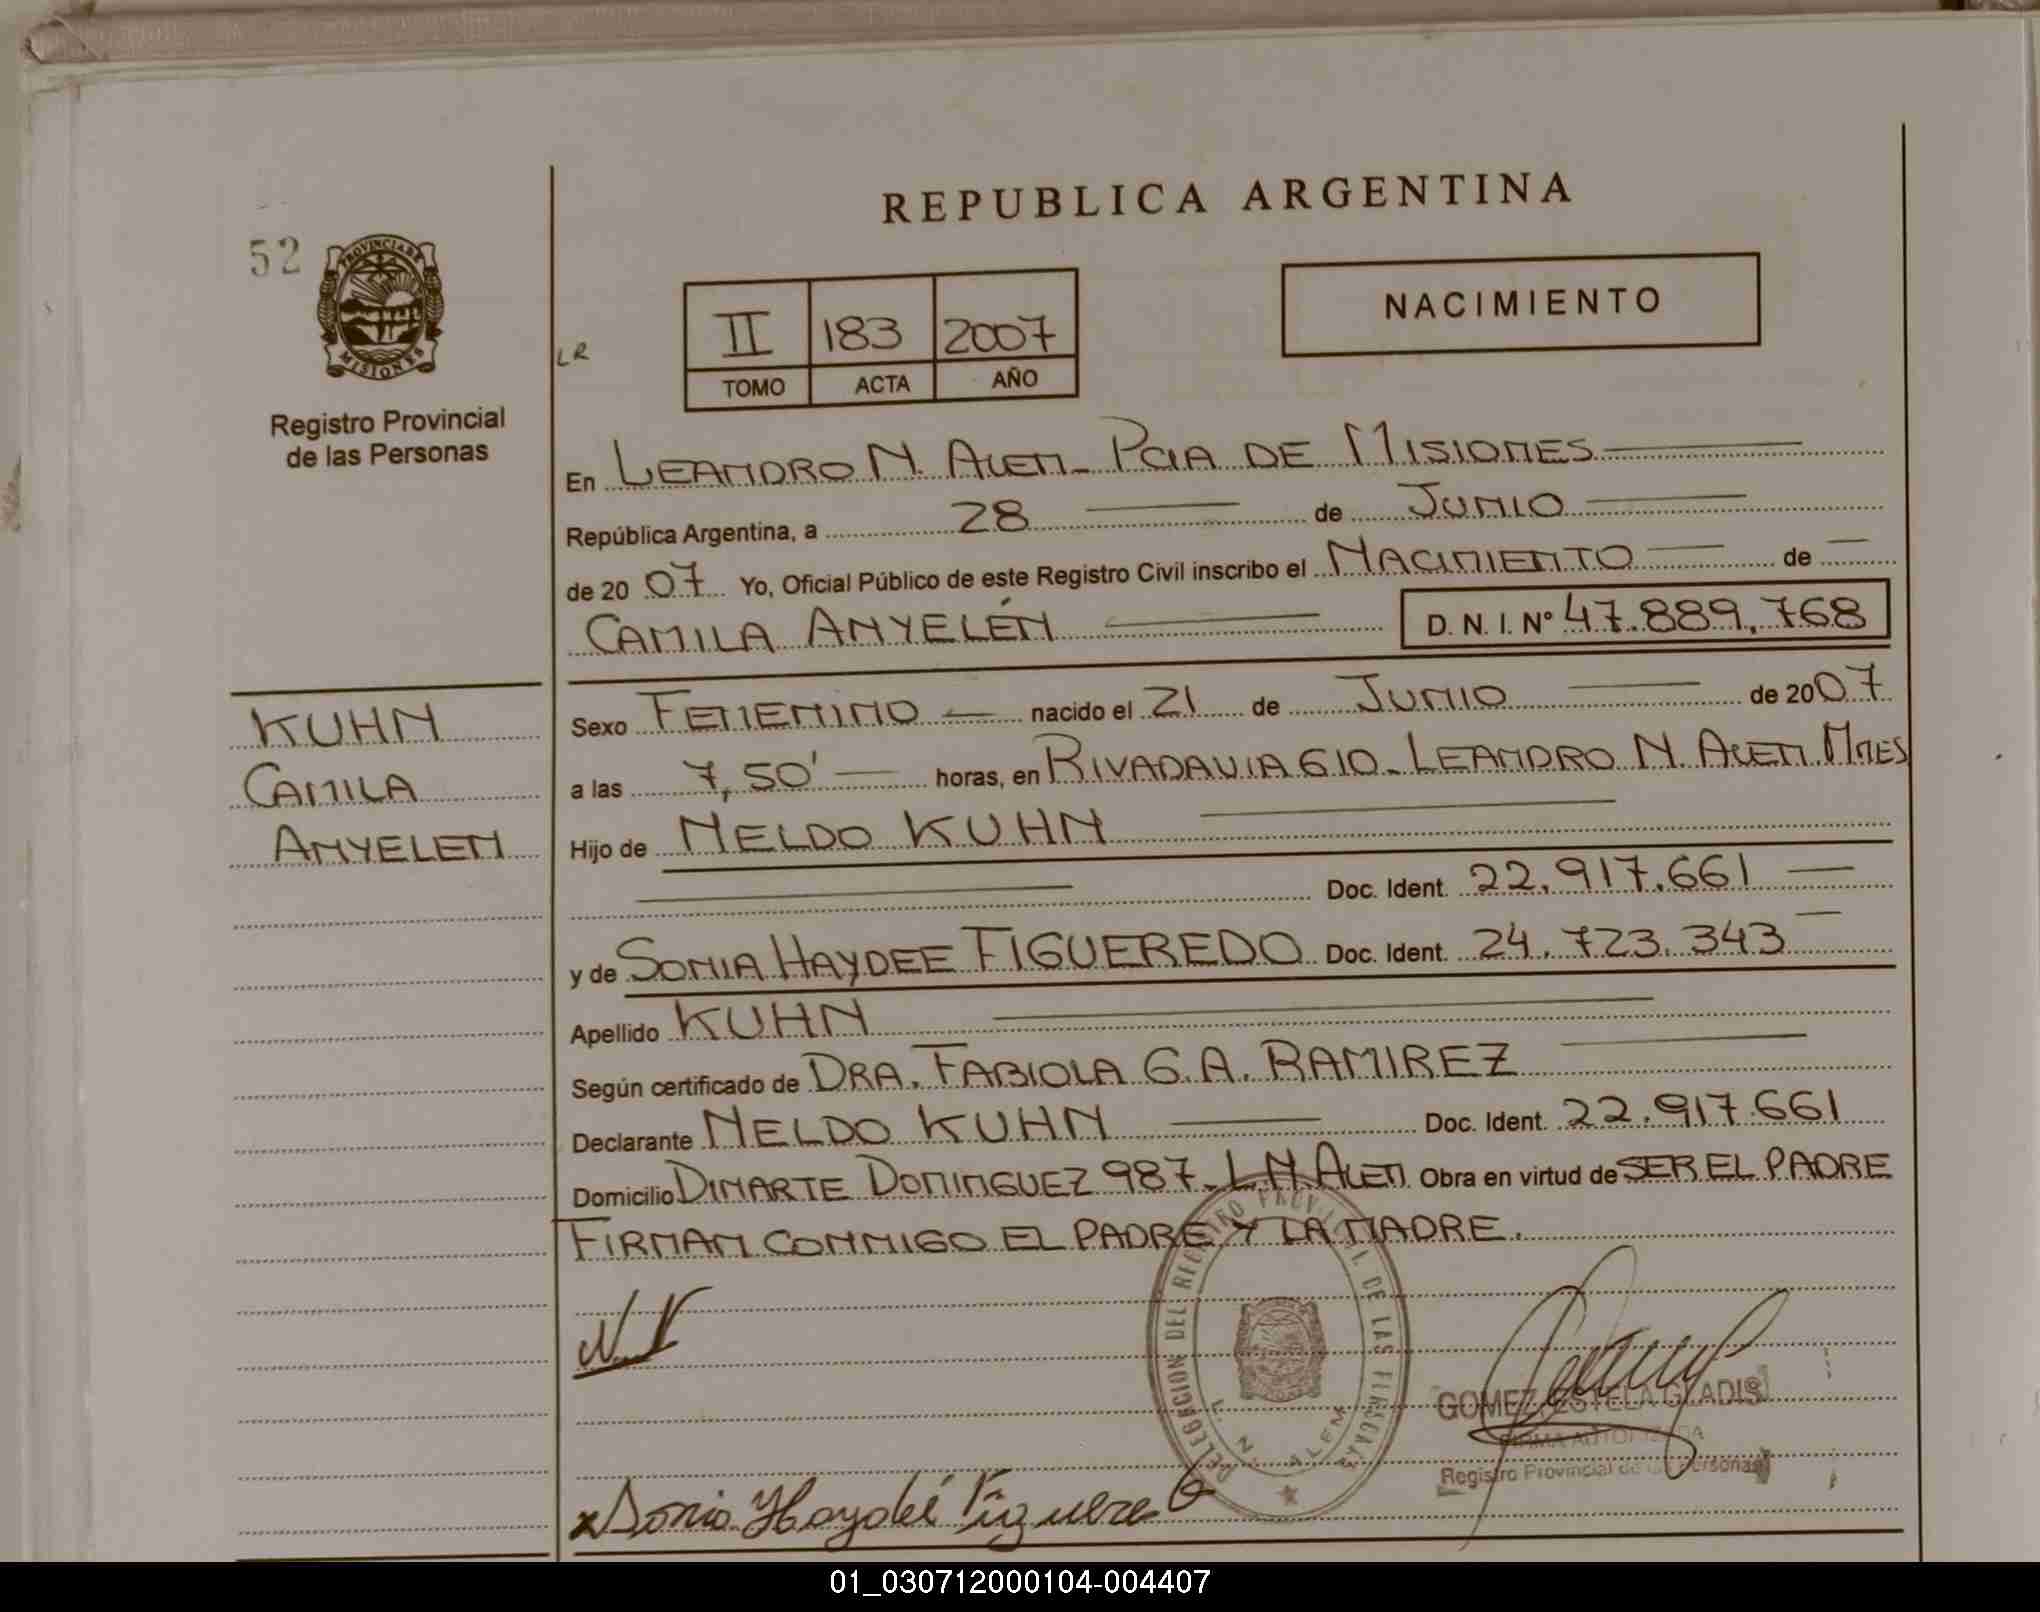 REPUBLICA ARGENTINA
52
PROVINCIA DE
MISIONES
Registro Provincial
de las Personas
LR
II 183 2007
TOMO ACTA AÑO
NACIMIENTO
En LEANDRO N. ALEM - PCIA DE MISIONES
República Argentina, a 28 de JUNIO
de 20 07 Yo, Oficial Público de este Registro Civil inscribo el NACIMIENTO de
CAMILA ANYELÉN D. N. I. Nº 47.889.768
KUHN
CAMILA
ANYELEN
Sexo FEMENINO nacido el 21 de JUNIO de 2007
a las 7,50' horas, en RIVADAVIA 610 - LEANDRO N. ALEM. MNES
Hijo de NELDO KUHN
Doc. Ident. 22.917.661
y de SONIA HAYDEE FIGUEREDO Doc. Ident. 24.723.343
Apellido KUHN
Según certificado de DRA. FABIOLA G.A. RAMIREZ
Declarante NELDO KUHN Doc. Ident. 22.917.661
Domicilio DINARTE DOMINGUEZ 987 - L.N. ALEM Obra en virtud de SER EL PADRE
FIRMAN CONMIGO EL PADRE Y LA MADRE.
N.K
DELEGACION DEL REGISTRO PROVINCIAL DE LAS PERSONAS
L. N. ALEM
GOMEZ, ESTELA GLADIS
FIRMA AUTORIZADA
Registro Provincial de las Personas
x Sonia Haydeé Figueredo
01_030712000104-004407